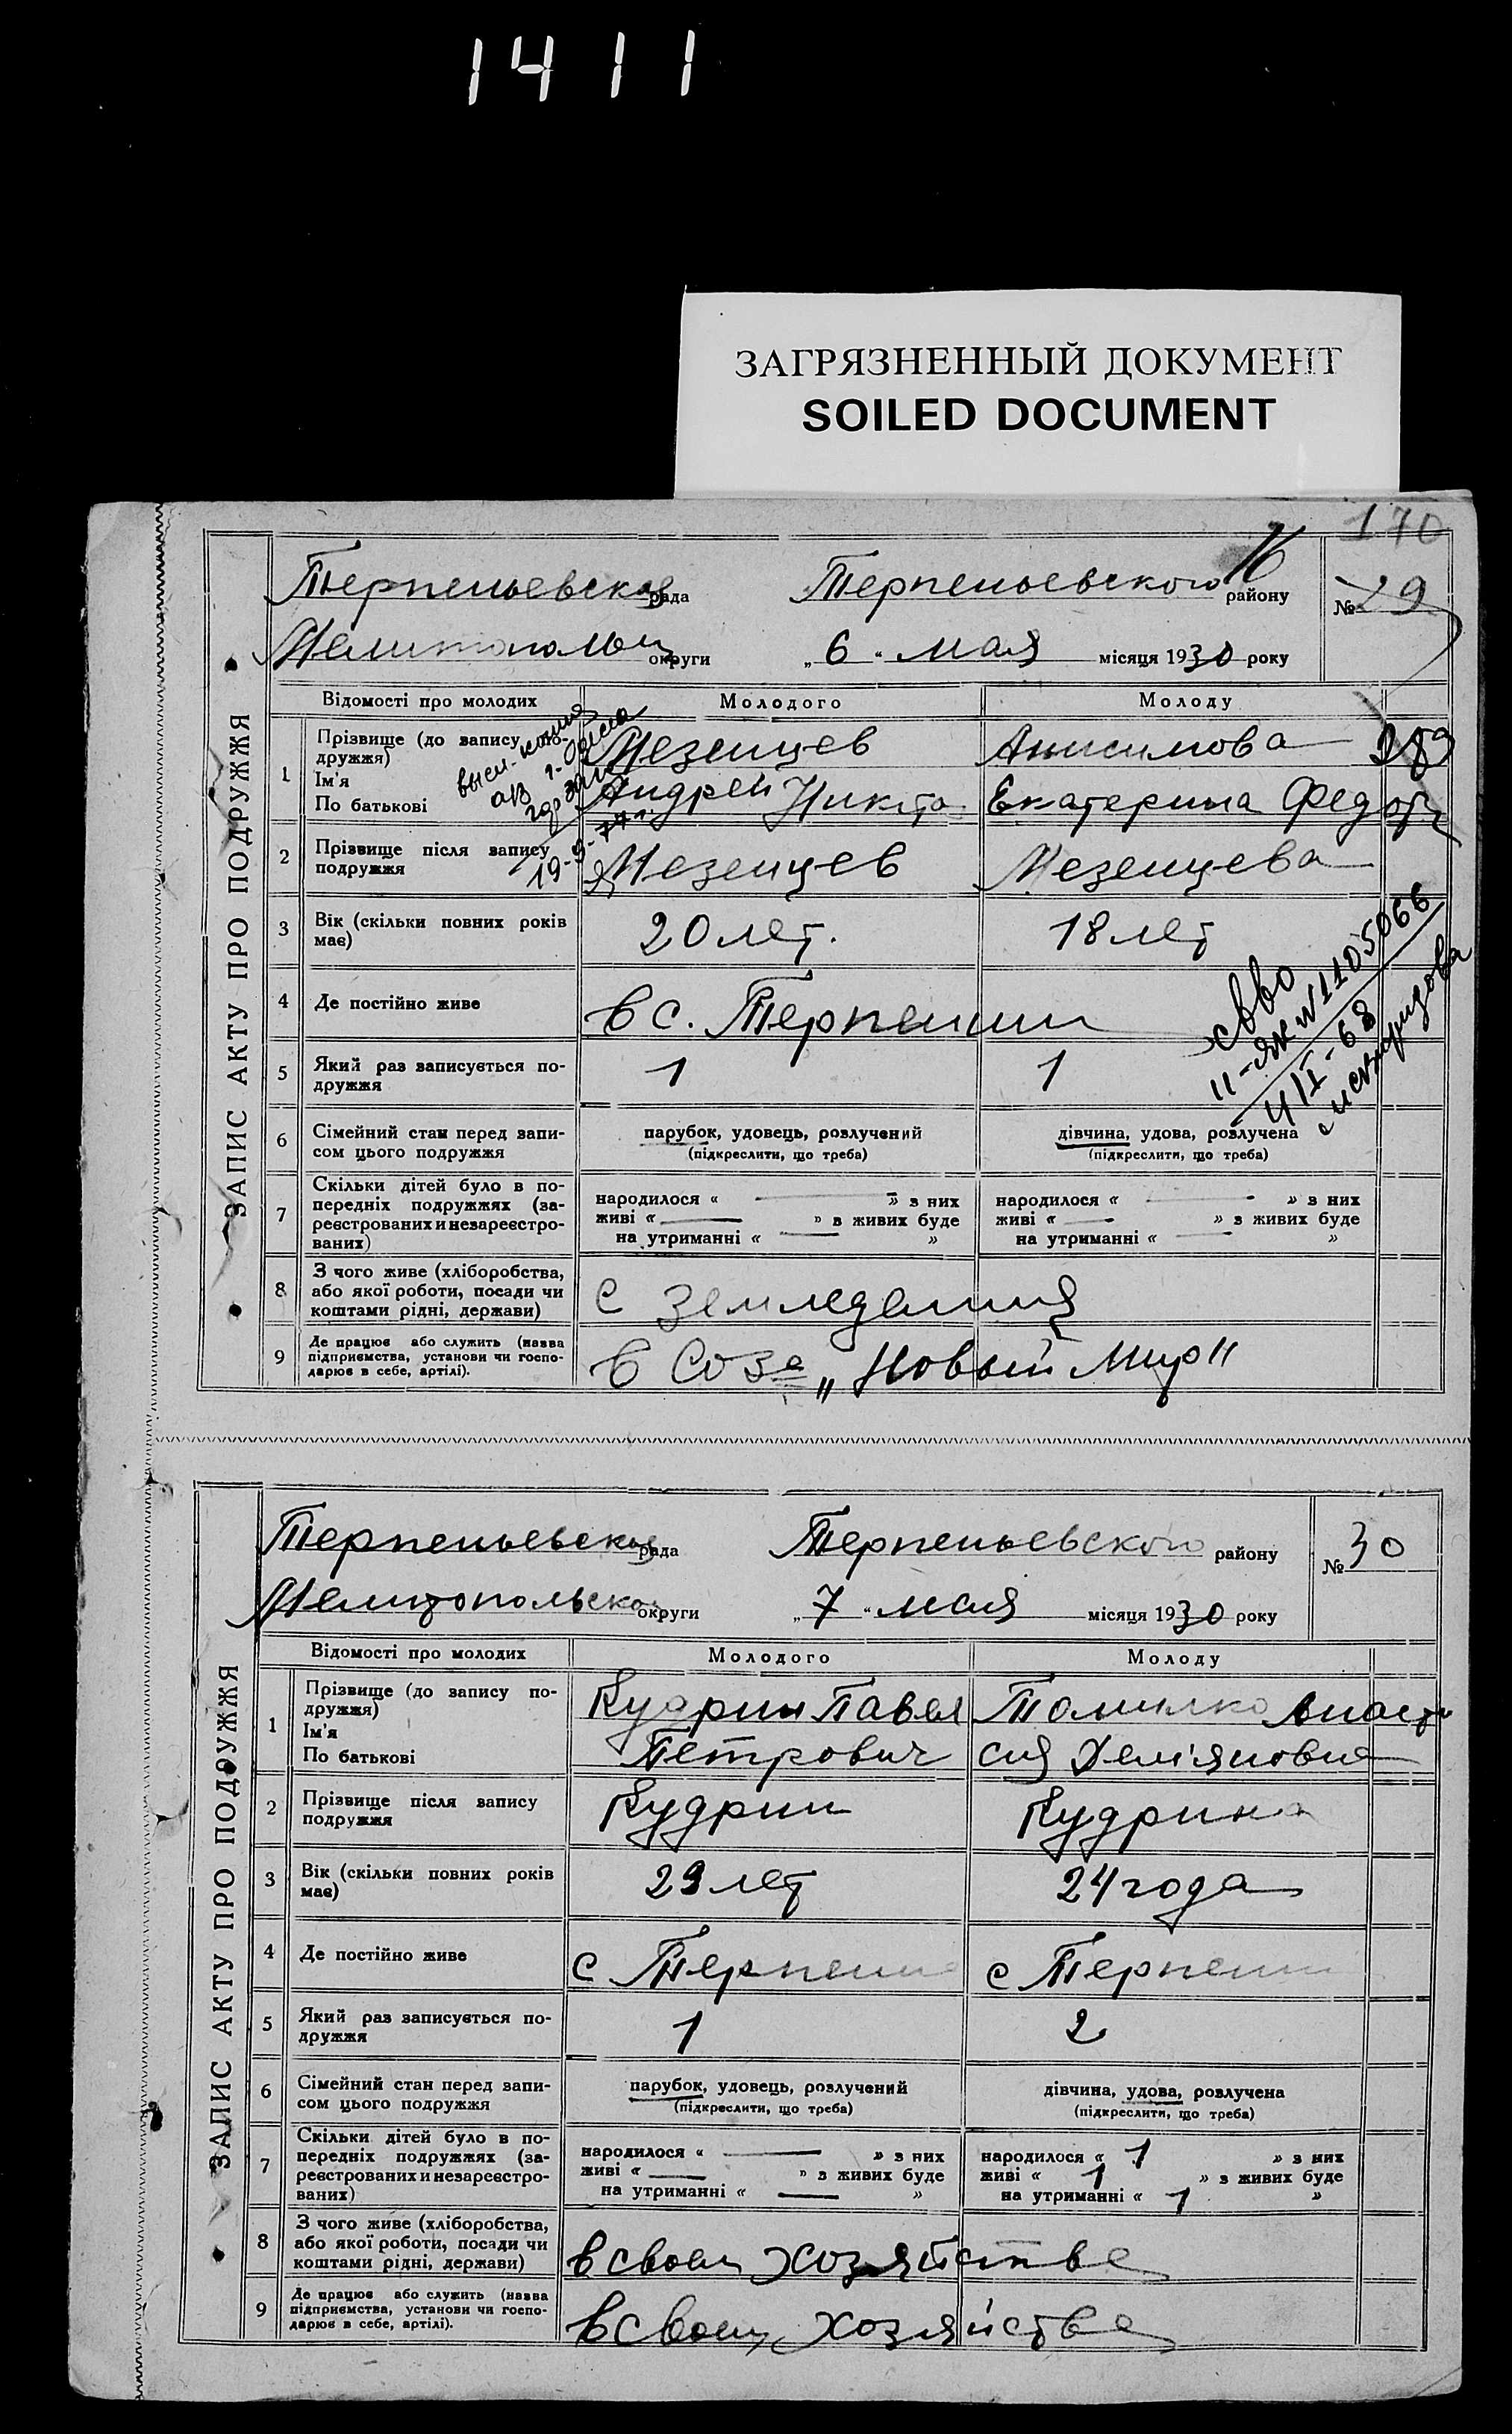 1411
ЗАГРЯЗНЕННЫЙ ДОКУМЕНТ
SOILED DOCUMENT
170
ЗАПИС АКТУ ПРО ПОДРУЖЖЯ
Терпеньевская рада Терпеньевского району № 29
округи „ 6 “ мая місяця 1930 року
Відомості про молодих Молодого Молоду
1 Прізвище (до запису по-
дружжя) Мезенцев Анисимова
Ім'я
По батькові Андрей Никита Екатерина Федор
2 Прізвище після запису
подружжя Мезенцев Мезенцева
19-9-74
3 Вік (скільки повних років
має) 20 лет. 18 лет
4 Де постійно живе в с. Терпении
св-во
II-ЯК N 1105066
4/I-68
5 Який раз записується по-
дружжя 1 1
6 Сімейний стан перед запи-
сом цього подружжя
парубок, удовець, розлучений
(підкреслити, що треба)
дівчина, удова, розлучена
(підкреслити, що треба)
7 Скільки дітей було в по-
передніх подружжях (за-
реєстрованих и незареєстро-
ваних)
народилося « — » з них
живі « — » з живих буде
на утриманні « — »
народилося « — » з них
живі « — » з живих буде
на утриманні « — »
8 З чого живе (хліборобства,
або якої роботи, посади чи
коштами рідні, держави) с земледелия
9 Де працює або служить (назва
підприємства, установи чи госпо-
дарює в себе, артілі). в Созе „Новый Мир"
ЗАПИС АКТУ ПРО ПОДРУЖЖЯ
Терпеньевская рада Терпеньевского району № 30
Мелитопольской округи „ 7 “ мая місяця 1930 року
Відомості про молодих Молодого Молоду
1 Прізвище (до запису по-
дружжя) Кудрин Павел Томилко Анаста
Ім'я
По батькові Петрович сия Хемʼяновна
2 Прізвище після запису
подружжя Кудрин Кудрина
3 Вік (скільки повних років
має) 23 лет 24 года
4 Де постійно живе с Терпение с Терпении
5 Який раз записується по-
дружжя 1 2
6 Сімейний стан перед запи-
сом цього подружжя
парубок, удовець, розлучений
(підкреслити, що треба)
дівчина, удова, розлучена
(підкреслити, що треба)
7 Скільки дітей було в по-
передніх подружжях (за-
реєстрованих и незареєстро-
ваних)
народилося « — » з них
живі « — » з живих буде
на утриманні « — »
народилося « 1 » з них
живі « 1 » з живих буде
на утриманні « 1 »
8 З чого живе (хліборобства,
або якої роботи, посади чи
коштами рідні, держави) в своем хозяйстве
9 Де працює або служить (назва
підприємства, установи чи госпо-
дарює в себе, артілі). в своем хозяйстве